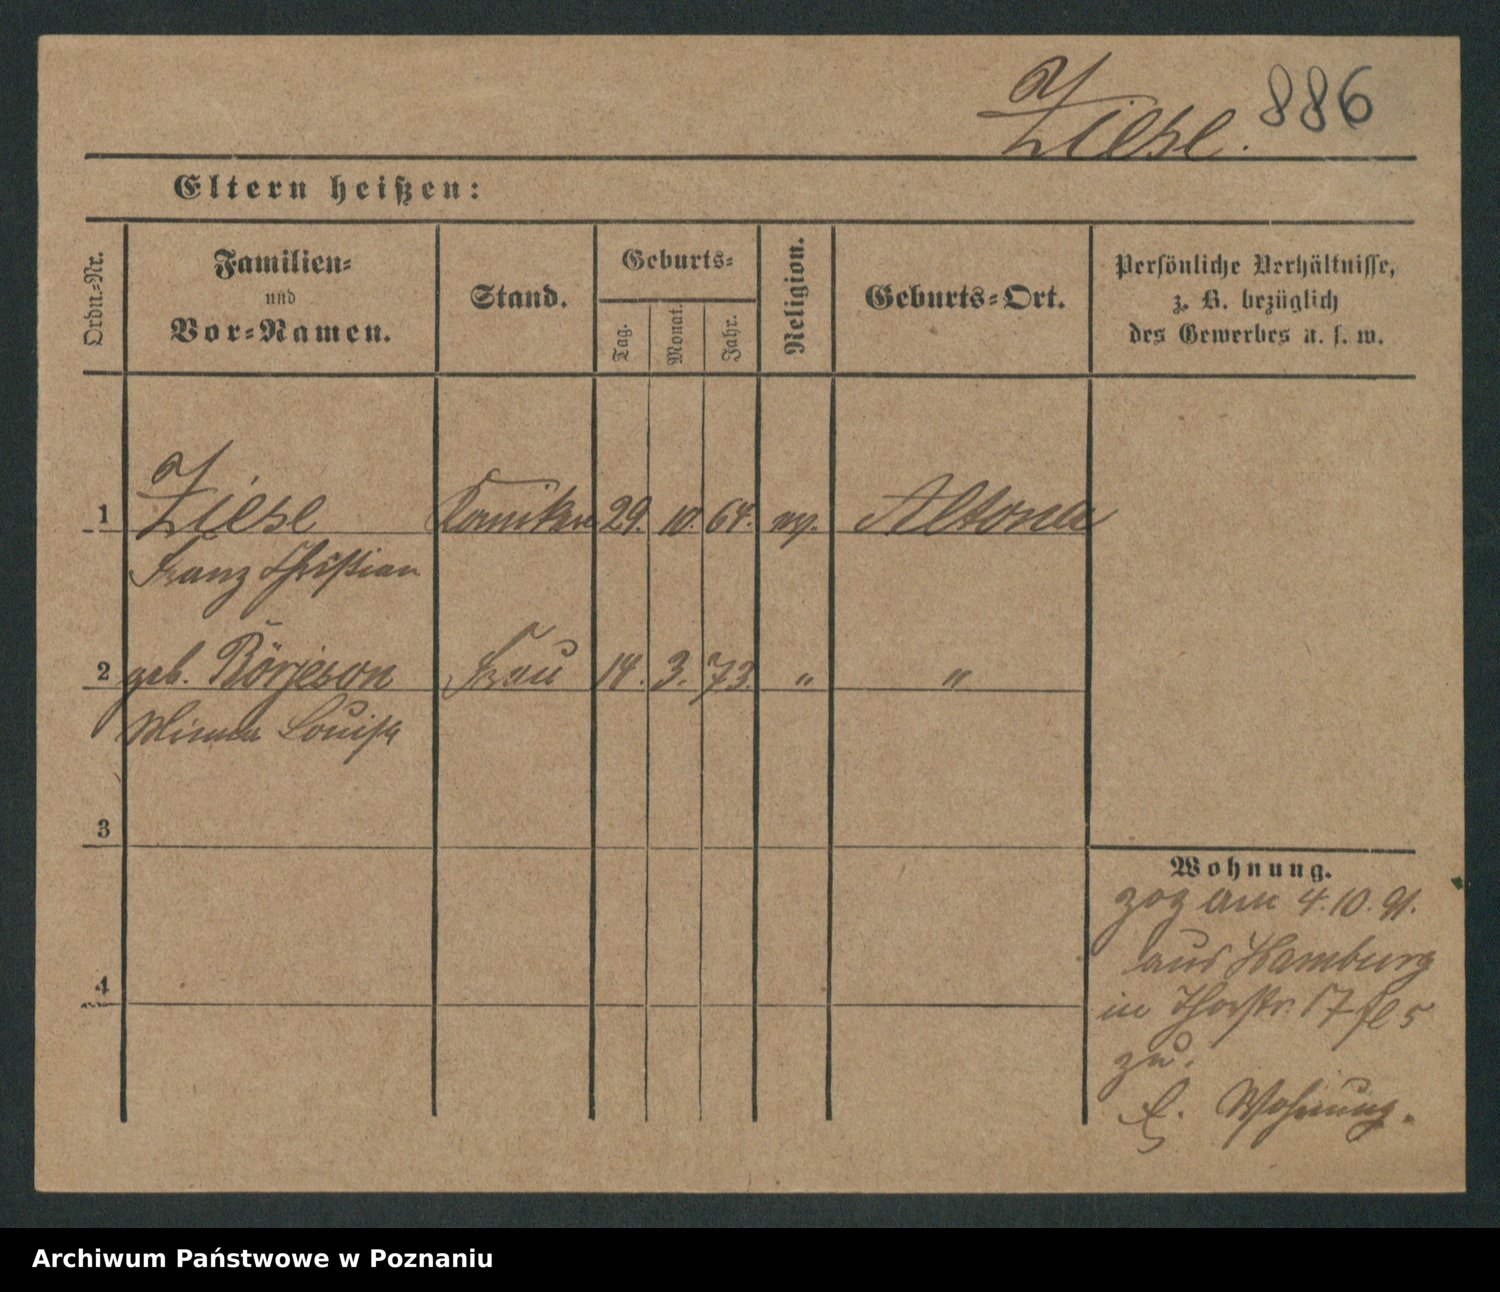 Ziese. 886
Eltern heißen:
Ordn.=Nr.
Familien=
und
Vor=Namen.
Stand.
Geburts=
Tag.
Monat.
Jahr.
Religion.
Geburts=Ort.
Persönliche Verhältnisse,
z. B. bezüglich
des Gewerbes u. s. w.
1 Ziese Komiker 29. 10. 64. ev. Altona
Franz Christian
2 geb. Börjeson Frau 14. 3. 73. " "
Minna Louise
3
4
Wohnung.
zog am 4.10.91.
aus Hamburg
in Thorstr. 17
zu.
Wohnung.
Archiwum Państwowe w Poznaniu